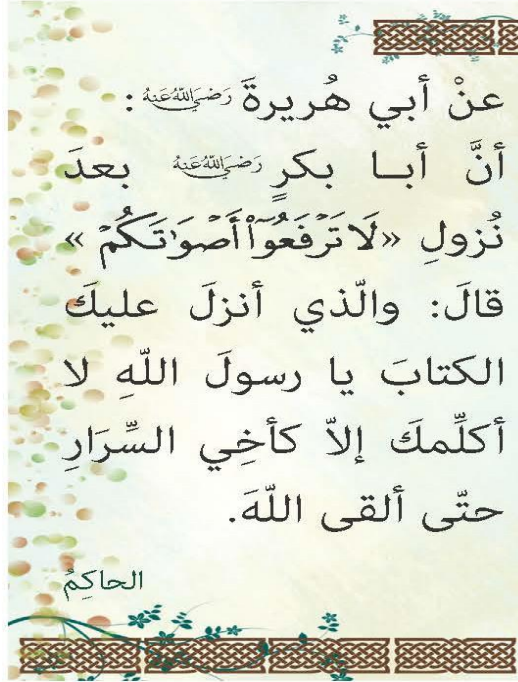 عنْ أبي هُريرةَ رَضِيَ اللَّهُ عَنْهُ :
أنَّ أبـا بكرٍ رَضِيَ اللَّهُ عَنْهُ بعدَ
نُزولِ «لَا تَرْفَعُوٓا۟ أَصْوَٰتَكُمْ »
قالَ: والّذي أنزلَ عليكَ
الكتابَ يا رسولَ اللّهِ لا
أكلِّمكَ إلاّ كأخِي السِّرَارِ
حتّى ألقى اللّهَ.
الحاكِمُ